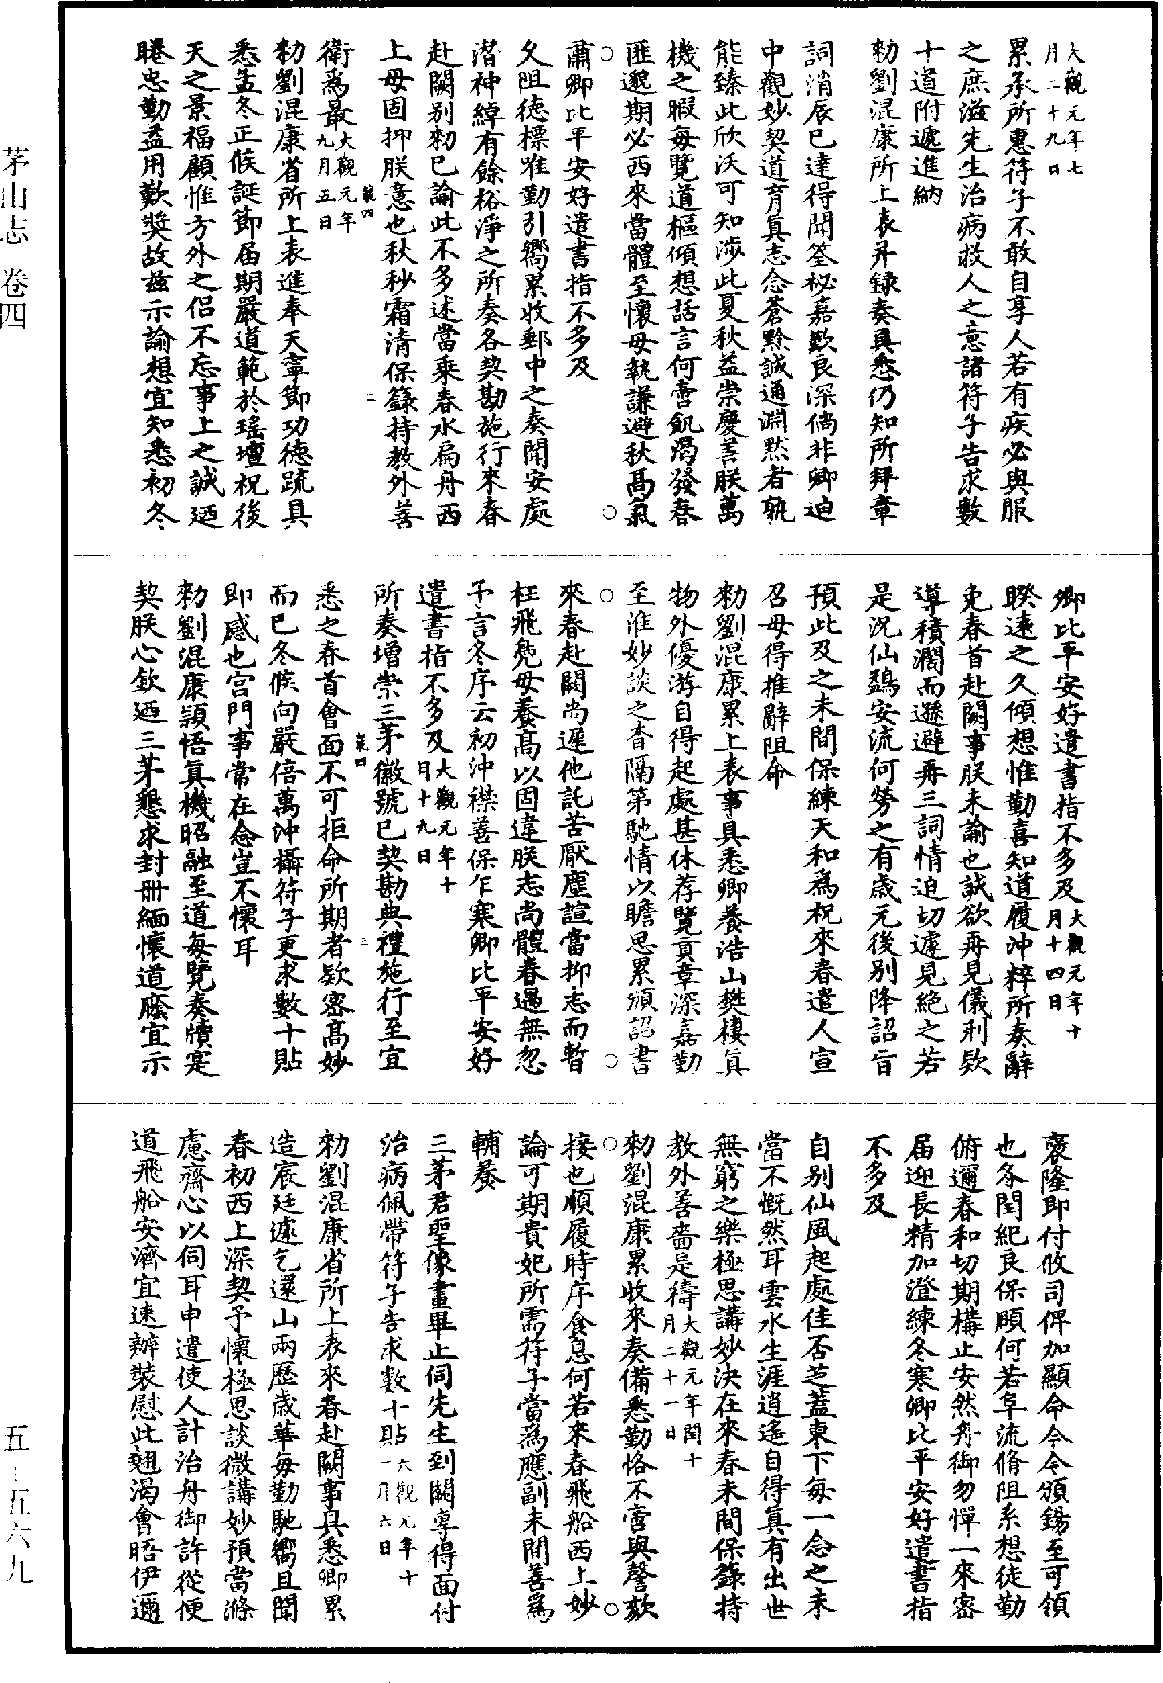 茅山志 卷四
五—五六九
大觀元年七
月二十九日
累承所惠符子不敢自享人若有疾必與服
之庶滋先生治病救人之意諸符子告求數
十道附遞進納
勑劉混康所上表并錄奏具悉仍知所拜章
詞消辰已達得聞筌祕嘉歎良深倘非卿迫
中觀妙契道育真志念蒼黔誠通淵默者孰
能臻此欣沃可知涉此夏秋益崇慶善朕萬
機之暇每覽道樞傾想話言何啻飢渴發春
匪邈期必西來當體至懷毋執謙避秋高氣
肅卿比平安好遣書指不多及
久阻德標唯勤引嚮累收郵中之奏開安處
潛神綽有餘裕淨之所奏各契勘施行來春
赴闕别勑已諭此不多述當乘春水扁舟西
上毋固抑朕意也秋杪霜清保籙持教外善
衛爲最大觀元年
九月五日
勑劉混康省所上表進奉天寧節功德疏具
悉孟冬正候誕節届期嚴道範於瑤壇祝後
天之景福顧惟方外之侣不忘事上之誠迺
睠忠勤益用歎奬故兹示諭想宜知悉初冬
卿比平安好遣書指不多及大觀元年十
月十四日
暌遠之久傾想惟勤喜知道履沖粹所奏辭
免春首赴闕事朕未諭也試欲再見儀刑欵
導積濶而遜避再三詞情迫切遽見絶之若
是況仙鷁安流何勞之有歲元後别降詔旨
預此及之未間保練天和爲祝來春遣人宣
召毋得推辭阻命
勑劉混康累上表事具悉卿養浩山樊棲真
物外優游自得起處甚休荐覽貢章深嘉勤
至淮妙談之杳隔第馳情以瞻思累頒詔書
來春赴闕尚遲他託苦厭塵諠當抑志而暫
枉飛凫毋養高以固違朕志尚體眷遇無忽
予言冬序云初沖襟善保乍寒卿比平安好
遣書指不多及大觀元年十
月十九日
所奏增崇三茅徽號已契勘典禮施行至宜
悉之春首會面不可拒命所期者欵密高妙
而已冬候向嚴倍萬沖攝符子更求數十貼
即感也宮門事常在念豈不懷耳
勑劉混康頴悟真機昭融至道每覽奏牘寔
契朕心欽迺三茅懇求封冊緬懷道廕宜示
褒隆即付攸司俾加顯命今令頒錫至可領
也冬閏紀良保頤何若阜流脩阻系想徒勤
俯邇春和切期構止安然舟御勿憚一來密
届迎長精加澄練冬寒卿比平安好遣書指
不多及
自别仙風起處佳否芝蓋東下每一念之未
當不慨然耳雲水生涯逍遙自得真有出世
無窮之樂極思講妙決在來春未間保籙持
教外善嗇是禱大觀元年閏十
月二十一日
勑劉混康累收來奏備悉勤恪不啻與謦欬
接也順履時序食息何若來春飛船西上妙
論可期貴妃所需符子當爲應副未間善爲
輔養
三茅君聖像畫畢止伺先生到闕專得面付
治病佩帶符子告求數十貼大觀元年十
一月六日
勑劉混康省所上表來春赴闕事具悉卿累
造宸廷遽乞還山兩歷歲華每勤馳嚮且聞
春初西上深契予懷極思談微講妙預當滌
慮齋心以伺耳申遣使人計治舟御許從便
道飛船安濟宜速辦裝慰此翹渴會晤伊邇